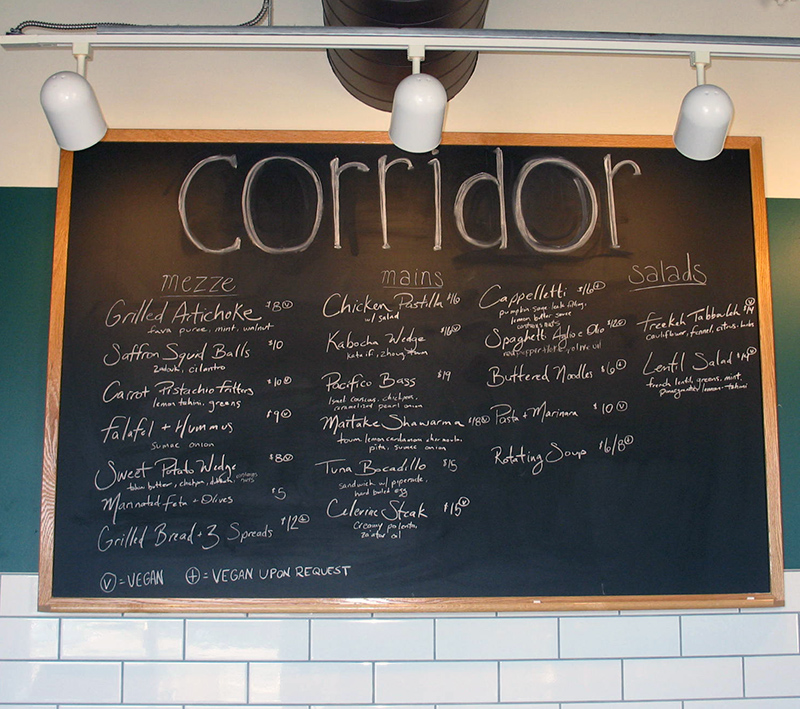 corridor
mezze
Grilled Artichoke $8 V
fava puree, mint, walnut
Saffron Squid Balls $10
zadouk, cilantro
Carrot Pistachio Fritters $10 V
lemon tahini, greens
Falafel + Hummus $9 V
sumac onion
Sweet Potato Wedge $8 V
tahini butter, chickpea, dukkah,
Marinated Feta + Olives $5
Grilled Bread + 3 Spreads $12 +
V = VEGAN + = VEGAN UPON REQUEST
mains
Chicken Pastilla $16
w/ salad
Kabocha Wedge $16 V
kataifi, zhoug,
Pacifico Bass $19
Israeli couscous, chickpeas,
caramelized pearl onion
Maitake Shawarma $18 V
toum, lemon cardamom
pita, sumac onion
Tuna Bocadillo $15
sandwich w/ piperade,
hard boiled egg
Celeriac Steak $15 V
creamy polenta,
za'atar oil
Cappelletti $16 +
pumpkin sage leek filling,
lemon butter sauce
Spaghetti Aglio e Olio
red pepper flake, olive oil
Buttered Noodles $6 +
Pasta + Marinara $10 V
Rotating Soup $6/8 +
salads
Freekeh Tabbouleh $14 V
cauliflower, fennel, citrus, herbs
Lentil Salad $14 V
french lentil, greens, mint,
pomegranate/lemon-tahini